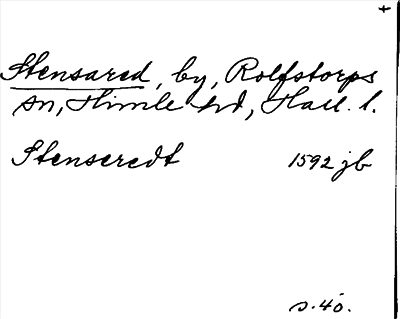 +
Stensared, by, Rolfstorps
sn, Himle hd, Hall. l.
Stenseredt 1592 jb
s. 40.